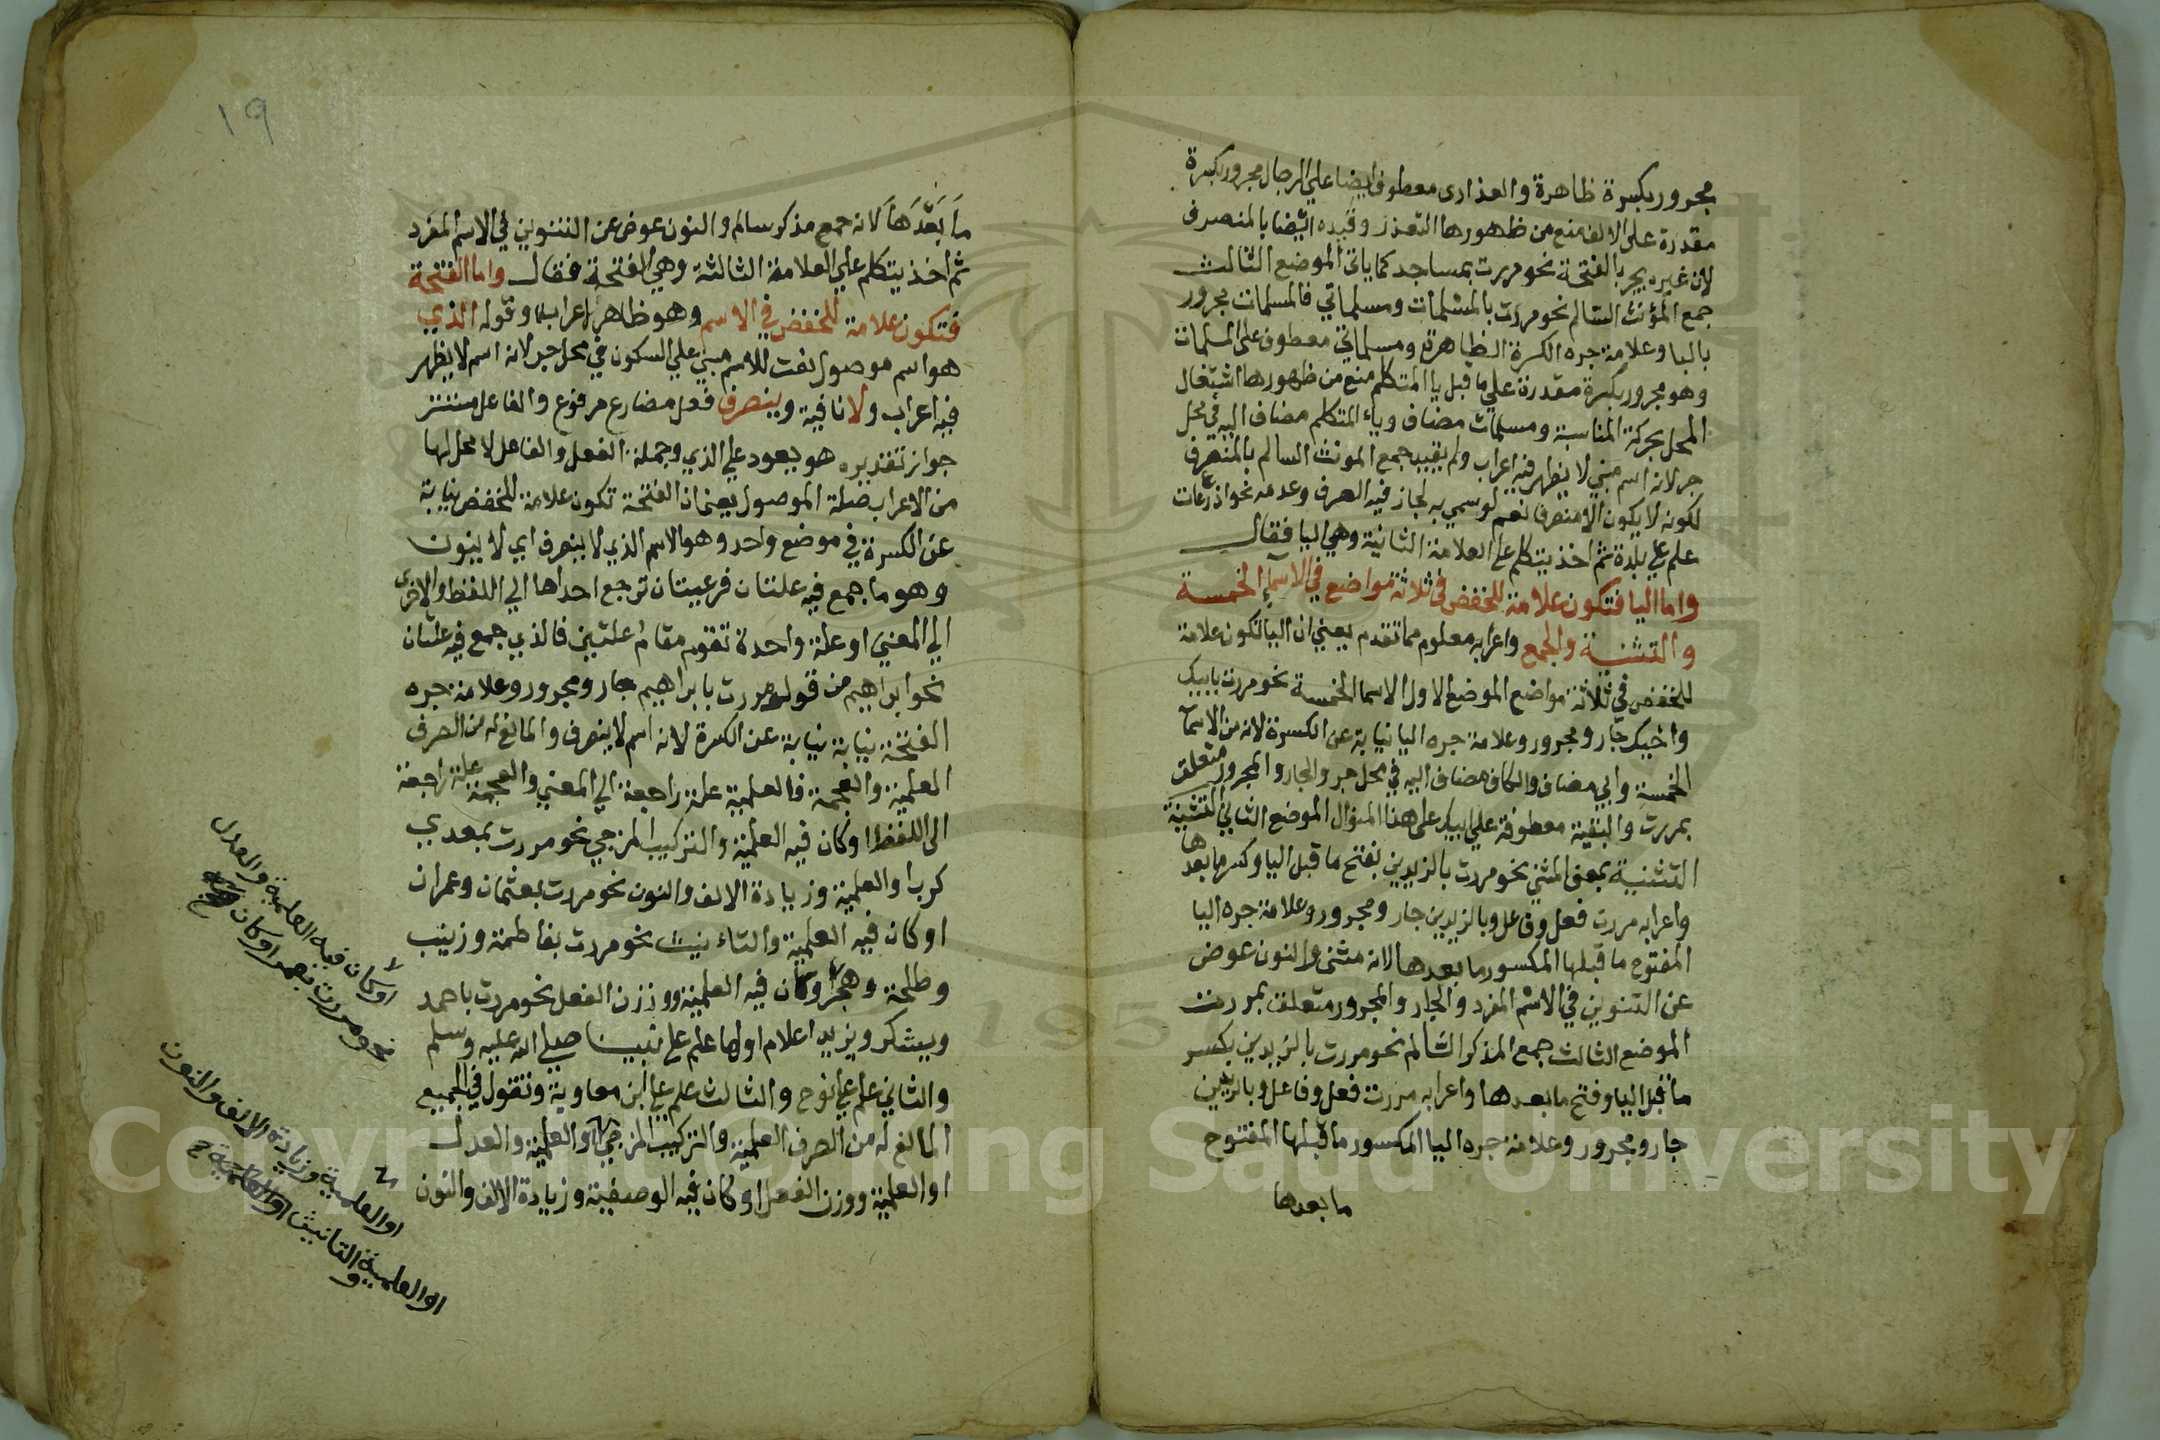 مجرور بكسرة ظاهرة والعذارى معطوف ايضا علي الرجال مجرور بكسرة
مقدرة على الالف منع من ظهورها التعذر وقيده ايضا بالمنصرف
لان غيره يجر بالفتحة نحو مررت بمساجد كما ياتي الموضع الثالث
جمع المؤنث السالم نحو مررت بالمسلمات ومسلماتي فالمسلمات مجرور
بالبا وعلامة جره الكسرة الظاهرة ومسلماتي معطوف على المسلمات
وهو مجرور بكسرة مقدرة علي ما قبل يا المتكلم منع من ظهورها اشتغال
المحل بحركة المناسبة ومسلمات مضاف وياء المتكلم مضاف اليه في محل
جر لانه اسم مبني لا يظهر فيه اعراب ولم يقيد جمع المونث السالم بالمنصرف
لكونه لا يكون الا منصرفا نعم لو سمي به لجاز فيه الصرف وعدمه نحو اذرعات
علم علي بلدة ثم اخذ يتكلم على العلامة الثانية وهي اليا فقال
واما اليا فتكون علامة للخفض في ثلاثة مواضع في الاسمآء الخمسة
والتثنية والجمع واعرابه معلوم مما تقدم يعني ان اليا تكون علامة
للخفض في ثلاثة مواضع الموضع الاول الاسما الخمسة نحو مررت بابيك
واخيك جار ومجرور وعلامة جره اليا نيابة عن الكسرة لانه من الاسمآ
الخمسة وابي مضاف والكاف مضاف اليه في محل جر والجار والمجرور متعلق
بمررت والبقية معطوفة علي ابيك على هذا المنوال الموضع الثاني التثنية
التثنية بمعنى المثني نحو مررت بالزيدين بفتح ما قبل اليا وكسر ما بعدها
واعرابه مررت فعل وفاعل وبالزيدين جار ومجرور وعلامة جره اليا
المفتوح ما قبلها المكسور ما بعدها لانه مثنى والنون عوض
عن التنوين في الاسم المفرد والجار والمجرور متعلق بمررت
الموضع الثالث جمع المذكر السالم نحو مررت بالزيدين بكسر
ما قبل اليا وفتح ما بعدها واعرابه مررت فعل وفاعل وبالزيدين
جار ومجرور وعلامة جره اليا المكسور ما قبلها المفتوح
ما بعدها
١٩
ما بَعْدَها لانه جمع مذكر سالم والنون عوض عن التنوين في الاسم المفرد
ثم اخذ يتكلم علي العلامة الثالثة وهي الفتحة فقال واما الفتحة
فتكون علامة للخفض في الاسم وهو ظاهر اعرابا وقوله الذي
هو اسم موصول نعت للاسم مبني علي السكون في محل جر لانه اسم لا يظهر
فيه اعراب ولا نافية وينصرف فعل مضارع مرفوع والفاعل مستتر
جواز تقديره هو يعود علي الذي وجملة الفعل والفاعل لا محل لها
من الاعراب صلة الموصول يعني ان الفتحة تكون علامة للخفض نيابة
عن الكسرة في موضع واحد وهو الاسم الذي لا ينصرف اي لا ينون
وهو ما جمع فيه علتان فرعيتان ترجع احداها الي اللفظ والاخرى
الي المعني او علة واحدة تقوم مقام علتين فالذي جمع فيه علتان
نحو ابراهيم من قولك مررت بابراهيم جار ومجرور وعلامة جره
الفتحة نيابة نيابة عن الكسرة لانه اسم لا ينصرف والمانع له من الصرف
العلمية والعجمة فالعلمية علة راجعة الي المعني والعجمة علة راجعة
الى اللفظ او كان فيه العلمية والتركيب المزجي نحو مررت بمعدي
كرب او العلمية وزيادة الالف والنون نحو مررت بعثمان وعمران
او كان فيه العلمية والتاءنيث نحو مررت بفاطمة وزينب
وطلحة وهجر او كان فيه العلمية ووزن الفعل نحو مررت باحمد
ويشكر ويزيد اعلام اولها علم علي نبينا صلي الله عليه وسلم
والثاني علم علي نوح والثالث علم علي ابن معاوية وتقول في الجميع
المانع له من الصرف العلمية والتركيب المزجي او العلمية والعدل
او العلمية ووزن الفعل او كان فيه الوصفية وزيادة الالف والنون
او كان فيه العلمية والعدل
نحو مررت بعمر او كان
او العلمية وزيادة الالف والنون
او العلمية والتانيث او العلمية
Copyright © King Saud University
1957